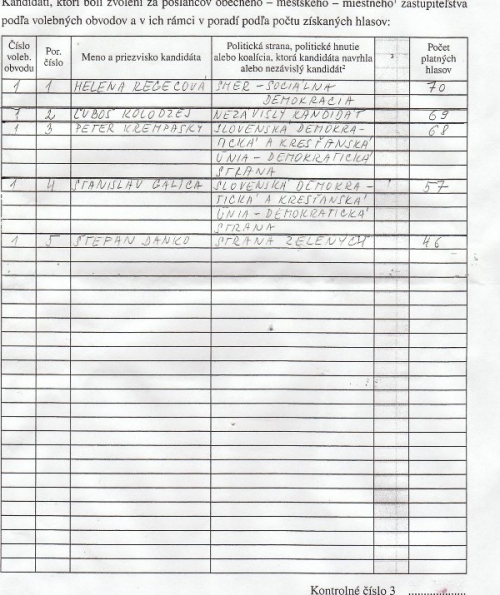 Kandidáti, ktorí boli zvolení za poslancov obecného – mestského – miestneho¹ zastupiteľstva
podľa volebných obvodov a v ich rámci v poradí podľa počtu získaných hlasov:
Číslo voleb. obvodu Por. číslo Meno a priezvisko kandidáta Politická strana, politické hnutie alebo koalícia, ktorá kandidáta navrhla alebo nezávislý kandidát² ³ Počet platných hlasov
1 1 HELENA REGECOVÁ SMER – SOCIÁLNA 70
DEMOKRACIA
1 2 ĽUBOŠ KOLODZEJ NEZÁVISLÝ KANDIDÁT 69
1 3 PETER KREMPASKÝ SLOVENSKÁ DEMOKRA- 68
TICKÁ A KRESŤANSKÁ
ÚNIA – DEMOKRATICKÁ
STRANA
1 4 STANISLAV GALICA SLOVENSKÁ DEMOKRA- 57
TICKÁ A KRESŤANSKÁ
ÚNIA – DEMOKRATICKÁ
STRANA
1 5 ŠTEPAN DANKO STRANA ZELENÝCH 46
Kontrolné číslo 3 ..................